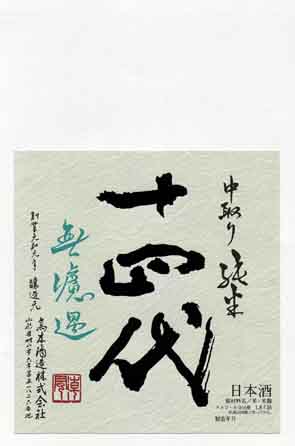 中取り純米
十四代
無濾過
創業元和元年 醸造元
高木酒造株式会社
日本酒
製造年月